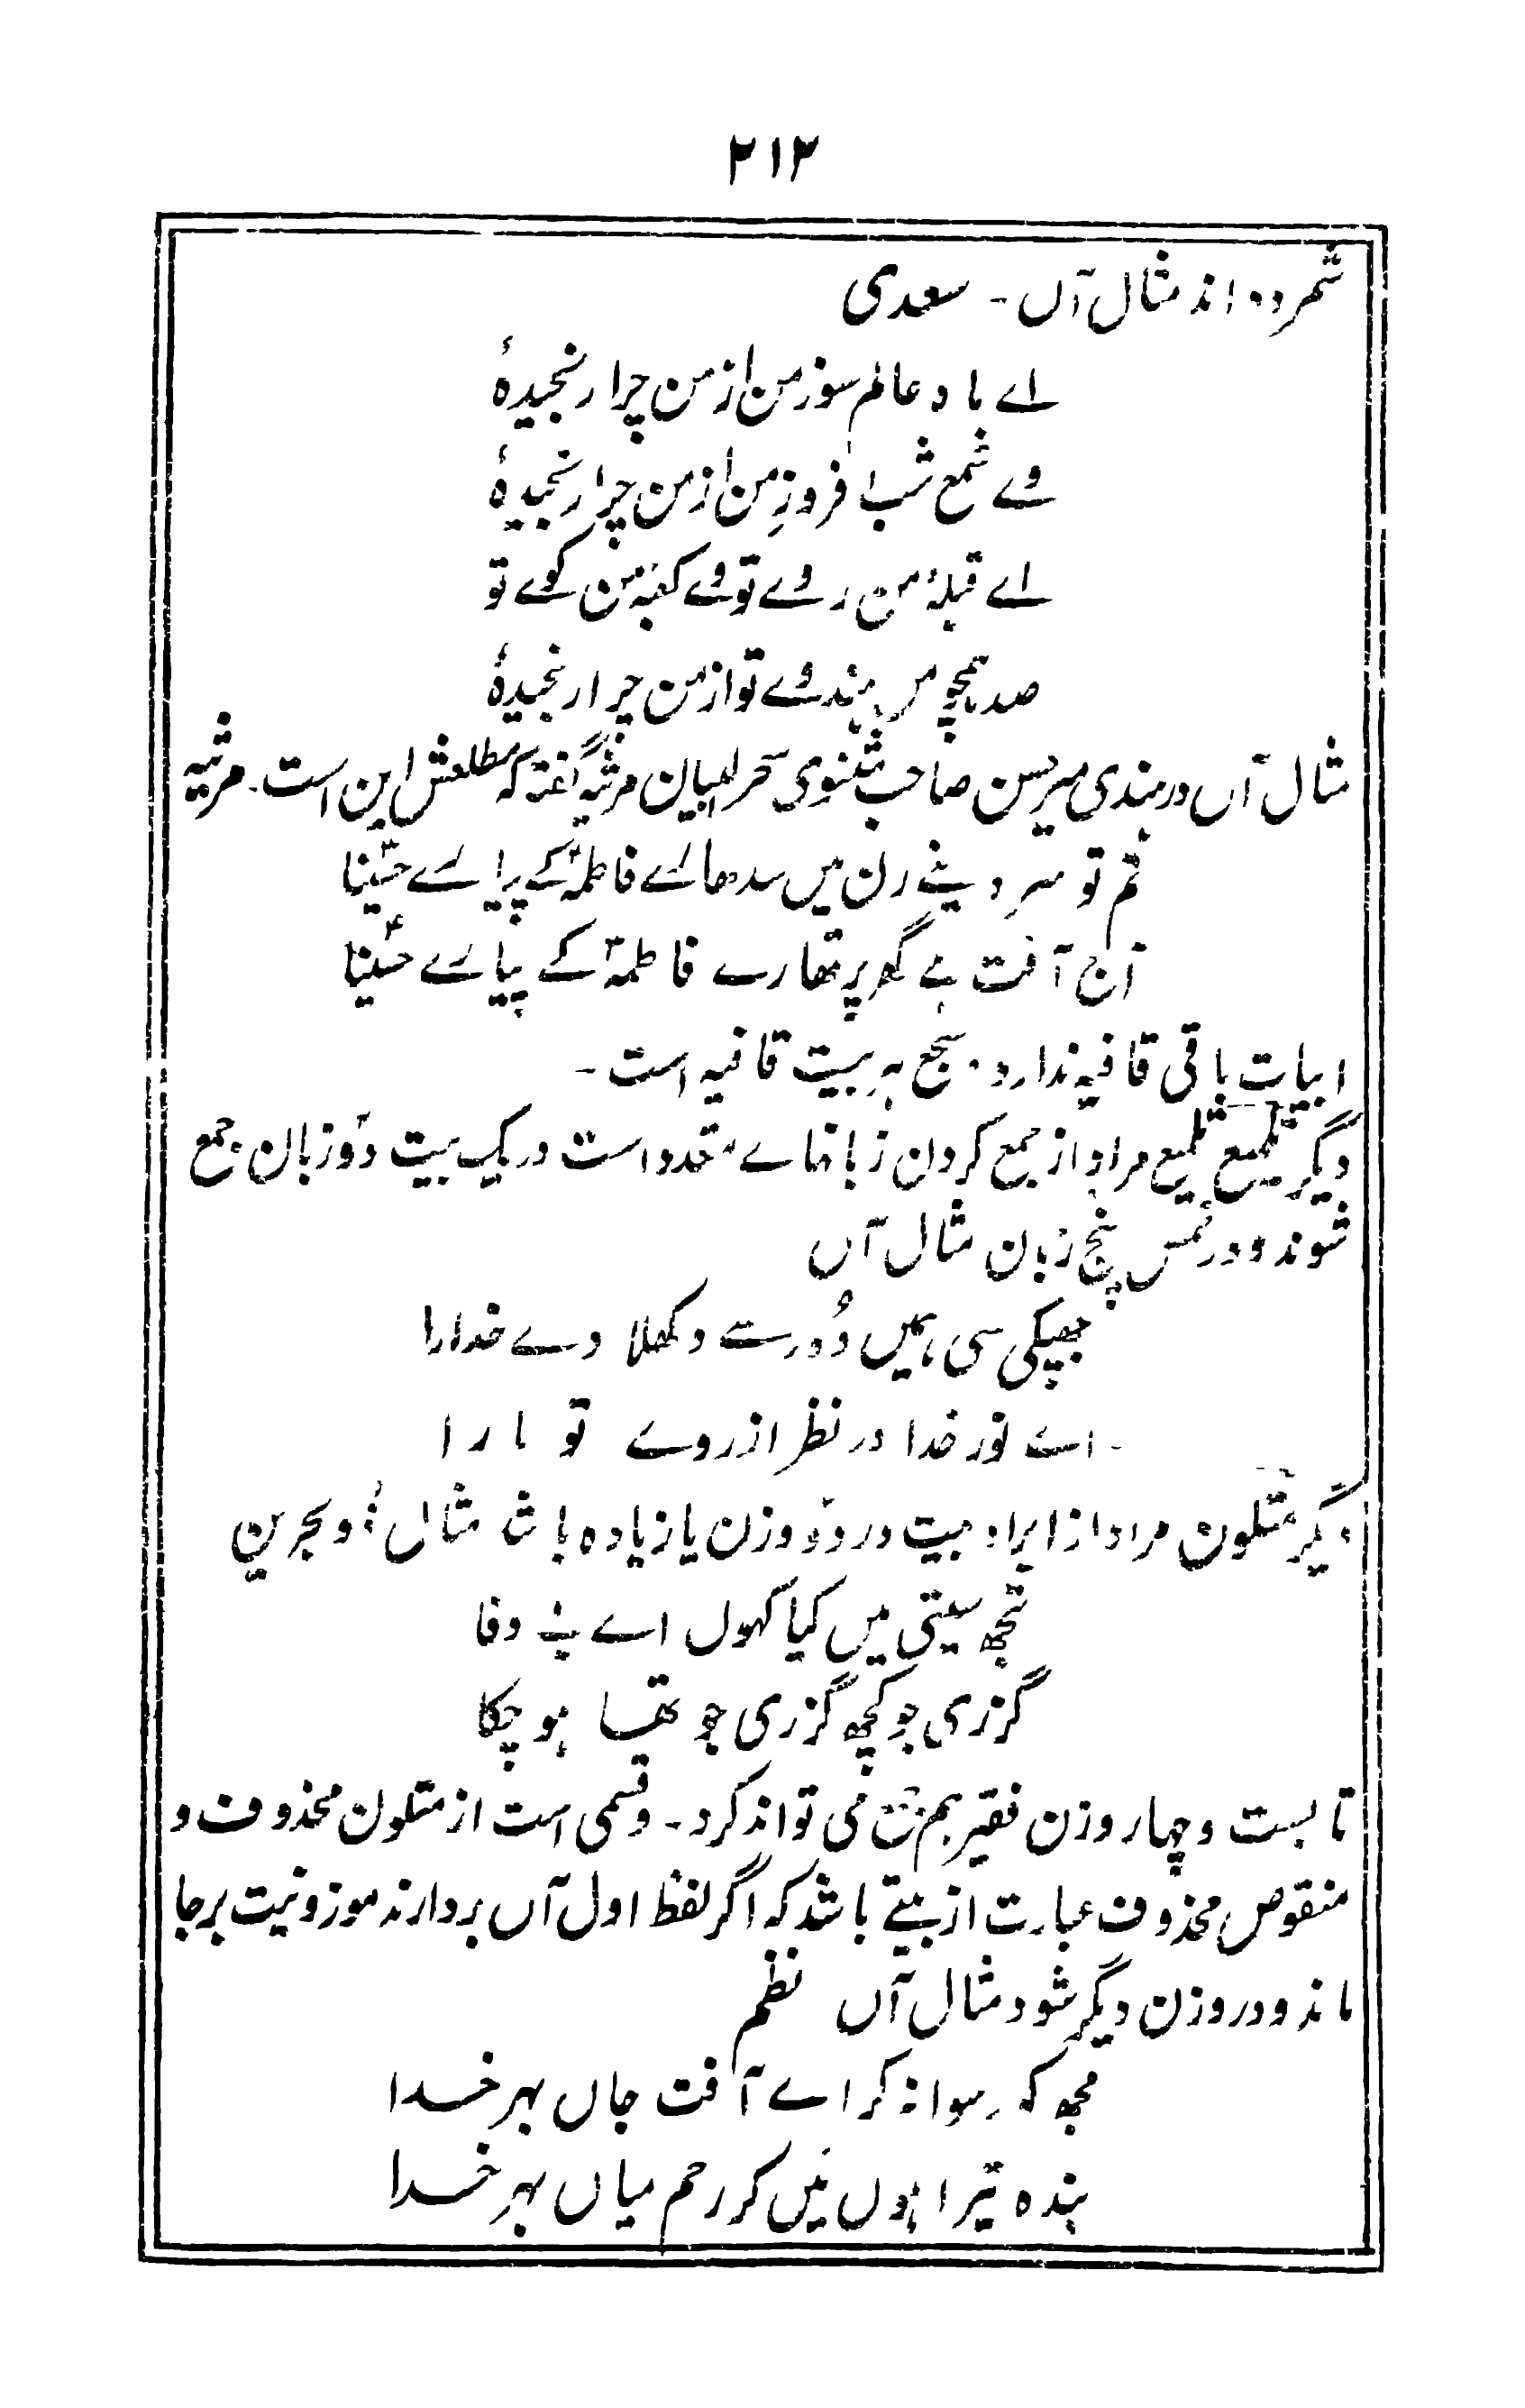 ۲۱۲
شمرده اند مثال آں - سعدی
اے ماہ عالم سوز من از من چرا رنجیدۂ
وے شمع شب افروزِ من از من چرا رنجیدۂ
اے قبلۂ من روے تو وے کعبۂ من کوے تو
صد ہمچو من ہندوے تو از من چرا رنجیدۂ
مثال آں در ہندی میر حسن صاحب مثنوی سحر البیان مرثیہ گفتہ کہ مطلعش این است۔ مرثیہ
تم تو سر دینے رن میں سدھارے فاطمہؑ کے پیارے حسینا
آن آفت ہے گھر پر تھارے فاطمہؑ کے پیارے حسینا
ابیات باقی قافیہ ندارد۔ سجع ہر بیت قافیہ است -
دیگر تلمیع تلمیع مراد از جمع کردن زبانہاے متعدد است در یک بیت دو زبان جمع
شوند و در مخمس پنج زبان مثال آں
جھپکی سی ہمیں دُور سے دکھلا دے خدارا
اے نور خدا در نظر از روے تو مارا
دیگر متلون مراد از ایراد بیت در دو وزن یا زیادہ باشد مثال ذو بحرین
تجھ سیتی میں کیا کہوں اے بے وفا
گزری جو کچھ گزری جو تھا ہو چکا
تا بست و چہار وزن فقیر ہم می تواند کرد - و قسمی است از متلون محذوف و
منقوص محذوف عبارت از بیتے باشد کہ اگر لفظ اول آں بردارند موزونیت برجا
ماند و در وزن دیگر شود مثال آں نظم
مجھ کو رسوا نہ کر اے آفت جاں بہر خدا
بندہ تیرا ہوں میں کر رحم میاں بہر خدا